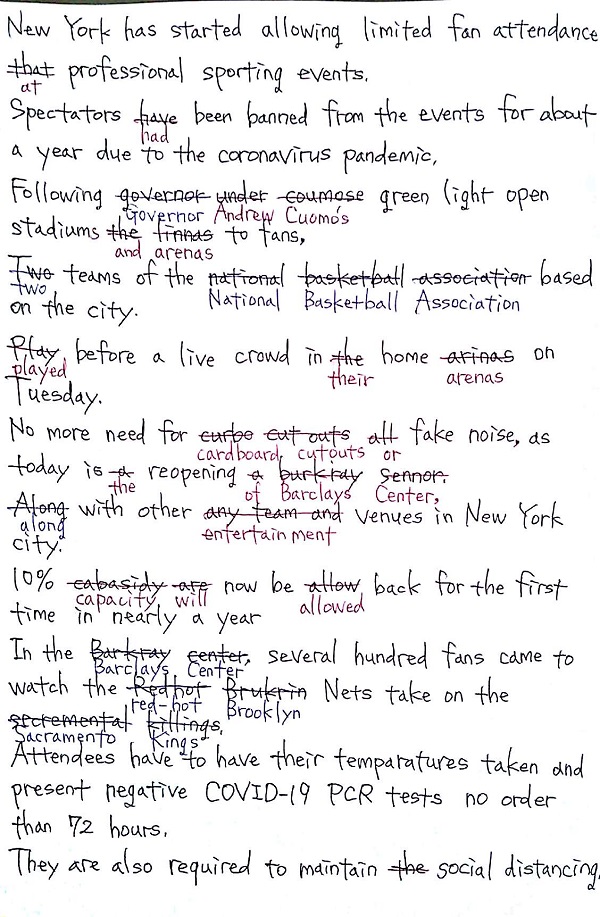 New York has started allowing limited fan attendance
that professional sporting events.
at
Spectators have been banned from the events for about
had
a year due to the coronavirus pandemic,
Following governor under coumose green light open
Governor Andrew Cuomo's
stadiums the finnas to fans,
and arenas
Two teams of the national basketball association based
two National Basketball Association
on the city.
Play before a live crowd in the home arinas on
played their arenas
Tuesday.
No more need for curbo cut outs all fake noise, as
cardboard cutouts or
today is a reopening a burkray sennor.
the of Barclays Center,
Along with other any team and venues in New York
along entertainment
city.
10% cabasidy are now be allow back for the first
capacity will allowed
time in nearly a year
In the Barkray center, several hundred fans came to
Barclays Center
watch the Redhot Brukrin Nets take on the
red-hot Brooklyn
secremental killings.
Sacramento Kings
Attendees have to have their temparatures taken and
present negative COVID-19 PCR tests no order
than 72 hours.
They are also required to maintain the social distancing.